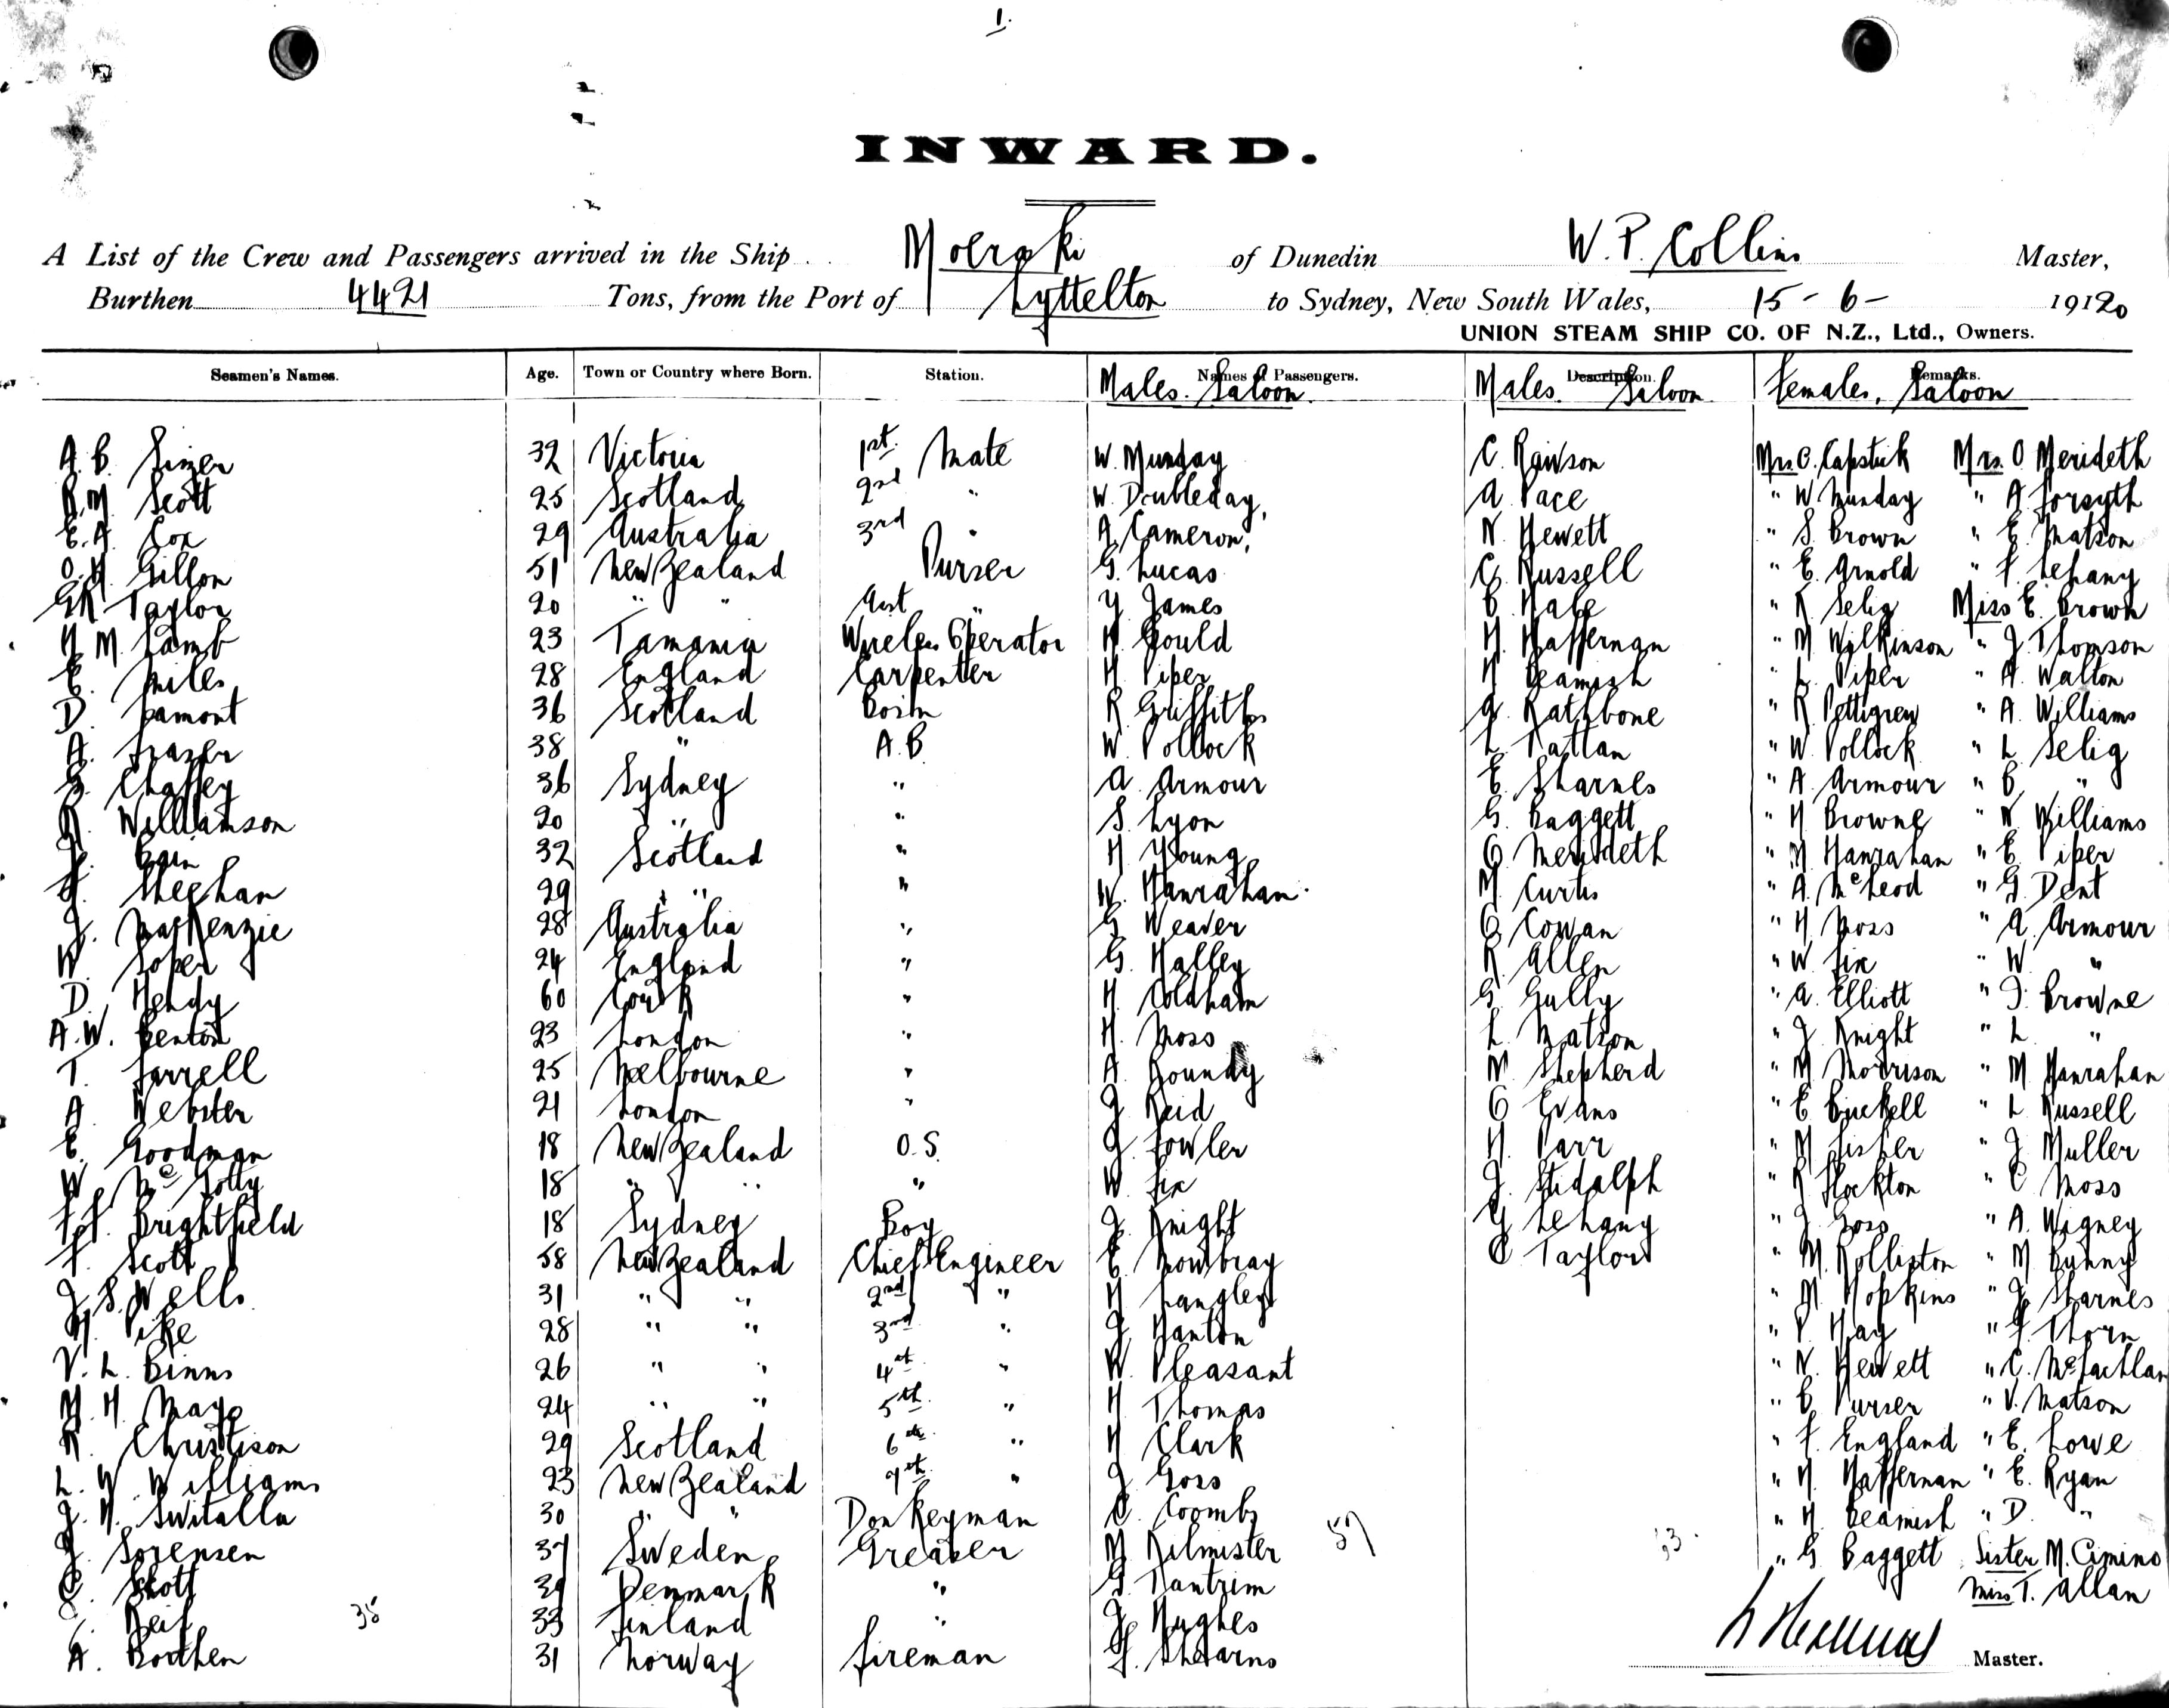 1.
INWARD.
A List of the Crew and Passengers arrived in the Ship Moeraki of Dunedin W. P. Collins Master,
Burthen 4421 Tons, from the Port of Lyttelton to Sydney, New South Wales, 15-6- 1920
UNION STEAM SHIP CO. OF N.Z., Ltd., Owners.
Seamen's Names. Age. Town or Country where Born. Station. Names of Passengers. Description. Remarks.
Males. Saloon. Males. Saloon Females. Saloon
A. B. 32 Victoria 1st. Mate W. Munday C. Rawson Mrs C. Capstick Mrs. O Merideth
R. M. Scott 25 Scotland 2nd " W. Doubleday, A. Pace " W Munday " A Forsyth
E. A. Cox 29 Australia 3rd " A. Cameron, N. Hewett " S. Brown " E. Matson
Gillon 51 New Zealand Purser G. Lucas C. Russell " E. Arnold " F. Lehany
GR Taylor 20 " " Asst " Y James C. Hale " R Selig Miss E. Brown
H M. Lamb 23 Tamania Wireless Operator H Gould H. Haffernan " M Wilkinson " J. Thomson
E. Miles 28 England Carpenter H Piper H Beamish " L. Piper " A. Walton
D. Lamont 36 Scotland Bosin R Griffiths A. Rathbone " R Pettigrew " A. Williams
A. Frazer 38 " A.B W. Pollock L. Rattan " W Pollock " L Selig
G. Chaffey 36 Sydney " A. Armour E. Sharnes " A. Armour " C. "
R. Williamson 20 " " S. Lyon G. Baggett " H Browne " N Williams
Bain 32 Scotland " H Young O. Merideth " M Hanrahan " E Piper
J. Sheehan 29 " " " W. Hanrahan. M. Curtis " A. McLeod " G. Dent
J. MacKenzie 28 Australia " G Weaver C Cowan " H Moss " A. Armour
W. Soper 24 England " G. Halley R Allen " W. Fix " W "
D. Hendy 60 Cork " H. Coldham G. Gully " A. Elliott " J. Browne
A. W. Benton 23 London " H. Moss L Matson " J Knight " L "
T. Farrell 25 Melbourne " A Boundy N. Shepherd " M Morrison " M Hanrahan
A Webster 21 London " J Reid C Evans " E Buckell " L Russell
E. Goodman 18 New Zealand O. S. J Fowler H. Parr " M Fisher " J Muller
W McGolly 18 " " " W Fix J. Stidolph " R Stockton " C Moss
Brightfield 18 Sydney Boy J. Knight G Lehany " J Goss " A. Wigney
F. Scott 58 New Zealand Chief Engineer E Mowbray C Taylor " M. Rolliston " M Bunny
J. S. Wells 31 " " 2nd " H Langley " M Hopkins " J. Sharnes
H. Pike 28 " " 3rd " J Hanton " P. Hay " F. Thorn
V. L. Binns 26 " " 4th " W. Pleasant " N. Hewett " C. McLachlan
M. H. Mayo 24 " " 5th " H Thomas " C. Purser " V. Matson
R. Christison 29 Scotland 6th " H Clark " F. England " E. Lowe
L. W. Williams 23 New Zealand 7th " J Goss " H. Haffernan " E. Ryan
J. H. Switalla 30 " " Donkeyman C. Coombs " H. Beamish " D. "
J. Sorensen 37 Sweden Greaser M Kilmister 57 33 " G Baggett Sister M. Cimino
C. Skott 39 Denmark " G. Hantrim Miss T. Allan
38 33 Finland " J. Hughes
A. Borthen 31 Norway Fireman F. Shearns Master.